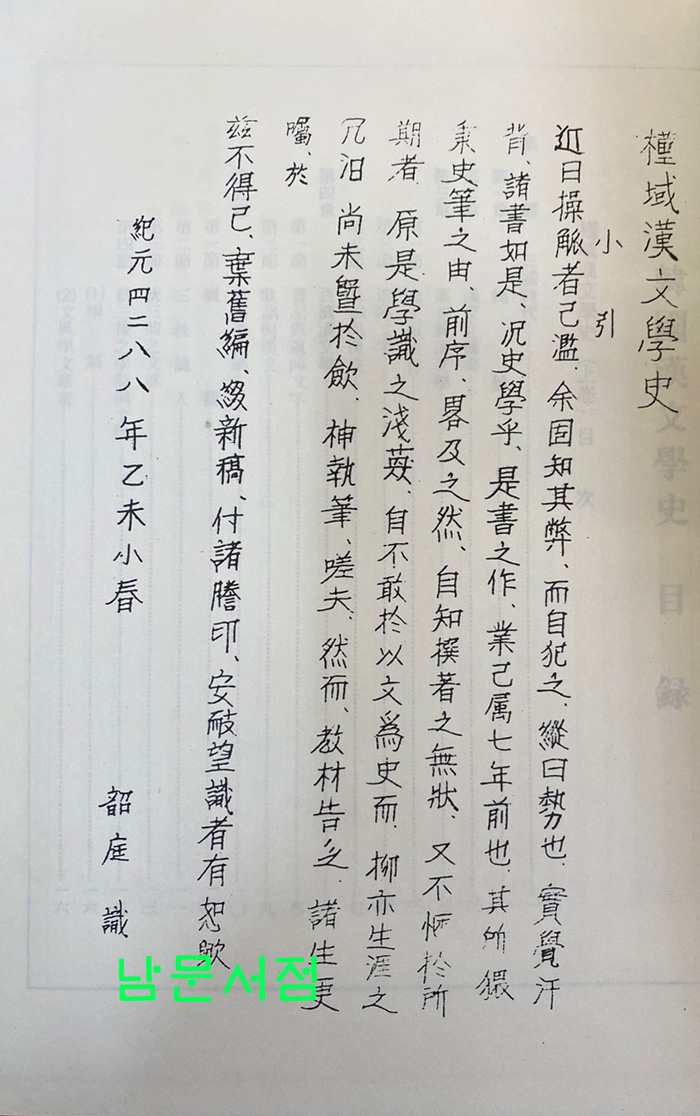 槿域漢文學史
小引
近日操觚者已濫、余固知其弊、而自犯之、縱曰勢也、實覺汗
背、諸書如是、况史學乎、是書之作、業已属七年前也、其所
秉史筆之由、前序、畧及之然、自知撰著之無狀、又不恢於所
期者、原是學識之淺、自不敢於以文爲史而、抑亦生涯之
冗汨 尙未曁於飮、神執筆、嗟夫、然而、教材告乏、諸生更
囑、於
玆不得已、棄舊編、綴新稿、付諸謄印、安敢望識者有恕歟
紀元四二八八年乙未小春
韶庭識
남문서점